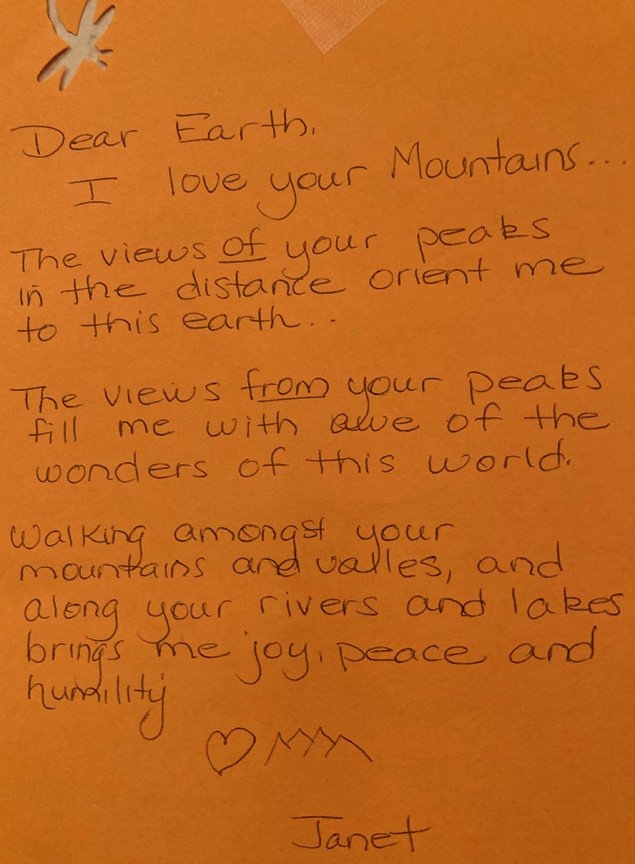 Dear Earth,
I love your Mountains...
The views of your peaks
in the distance orient me
to this earth...
The views from your peaks
fill me with awe of the
wonders of this world.
Walking amongst your
mountains and valles, and
along your rivers and lakes
brings me joy, peace and
humility
Janet